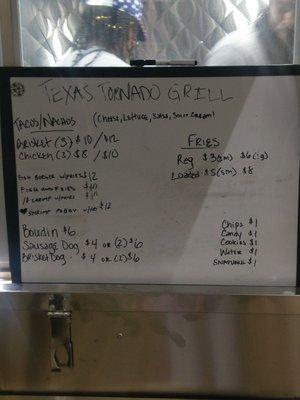 TEXAS TORNADO GRILL
TACOS/NACHOS (Cheese, Lettuce, Salsa, Sour Cream)
BRISKET (3) $10 / $12
Chicken (3) $8 / $10
FISH BURGER w/FRIES $12
FISH AND FRIES
10 SHRIMP w/FRIES
♥ SHRIMP POBOY $12
Boudin $6
Sausage Dog $4 or (2) $6
Brisket Dog $4 or (2) $6
FRIES
Reg $3 (sm) $6 (lg)
Loaded $5 (sm) $8
Chips $1
Candy $1
Cookies $1
Water $1
$1